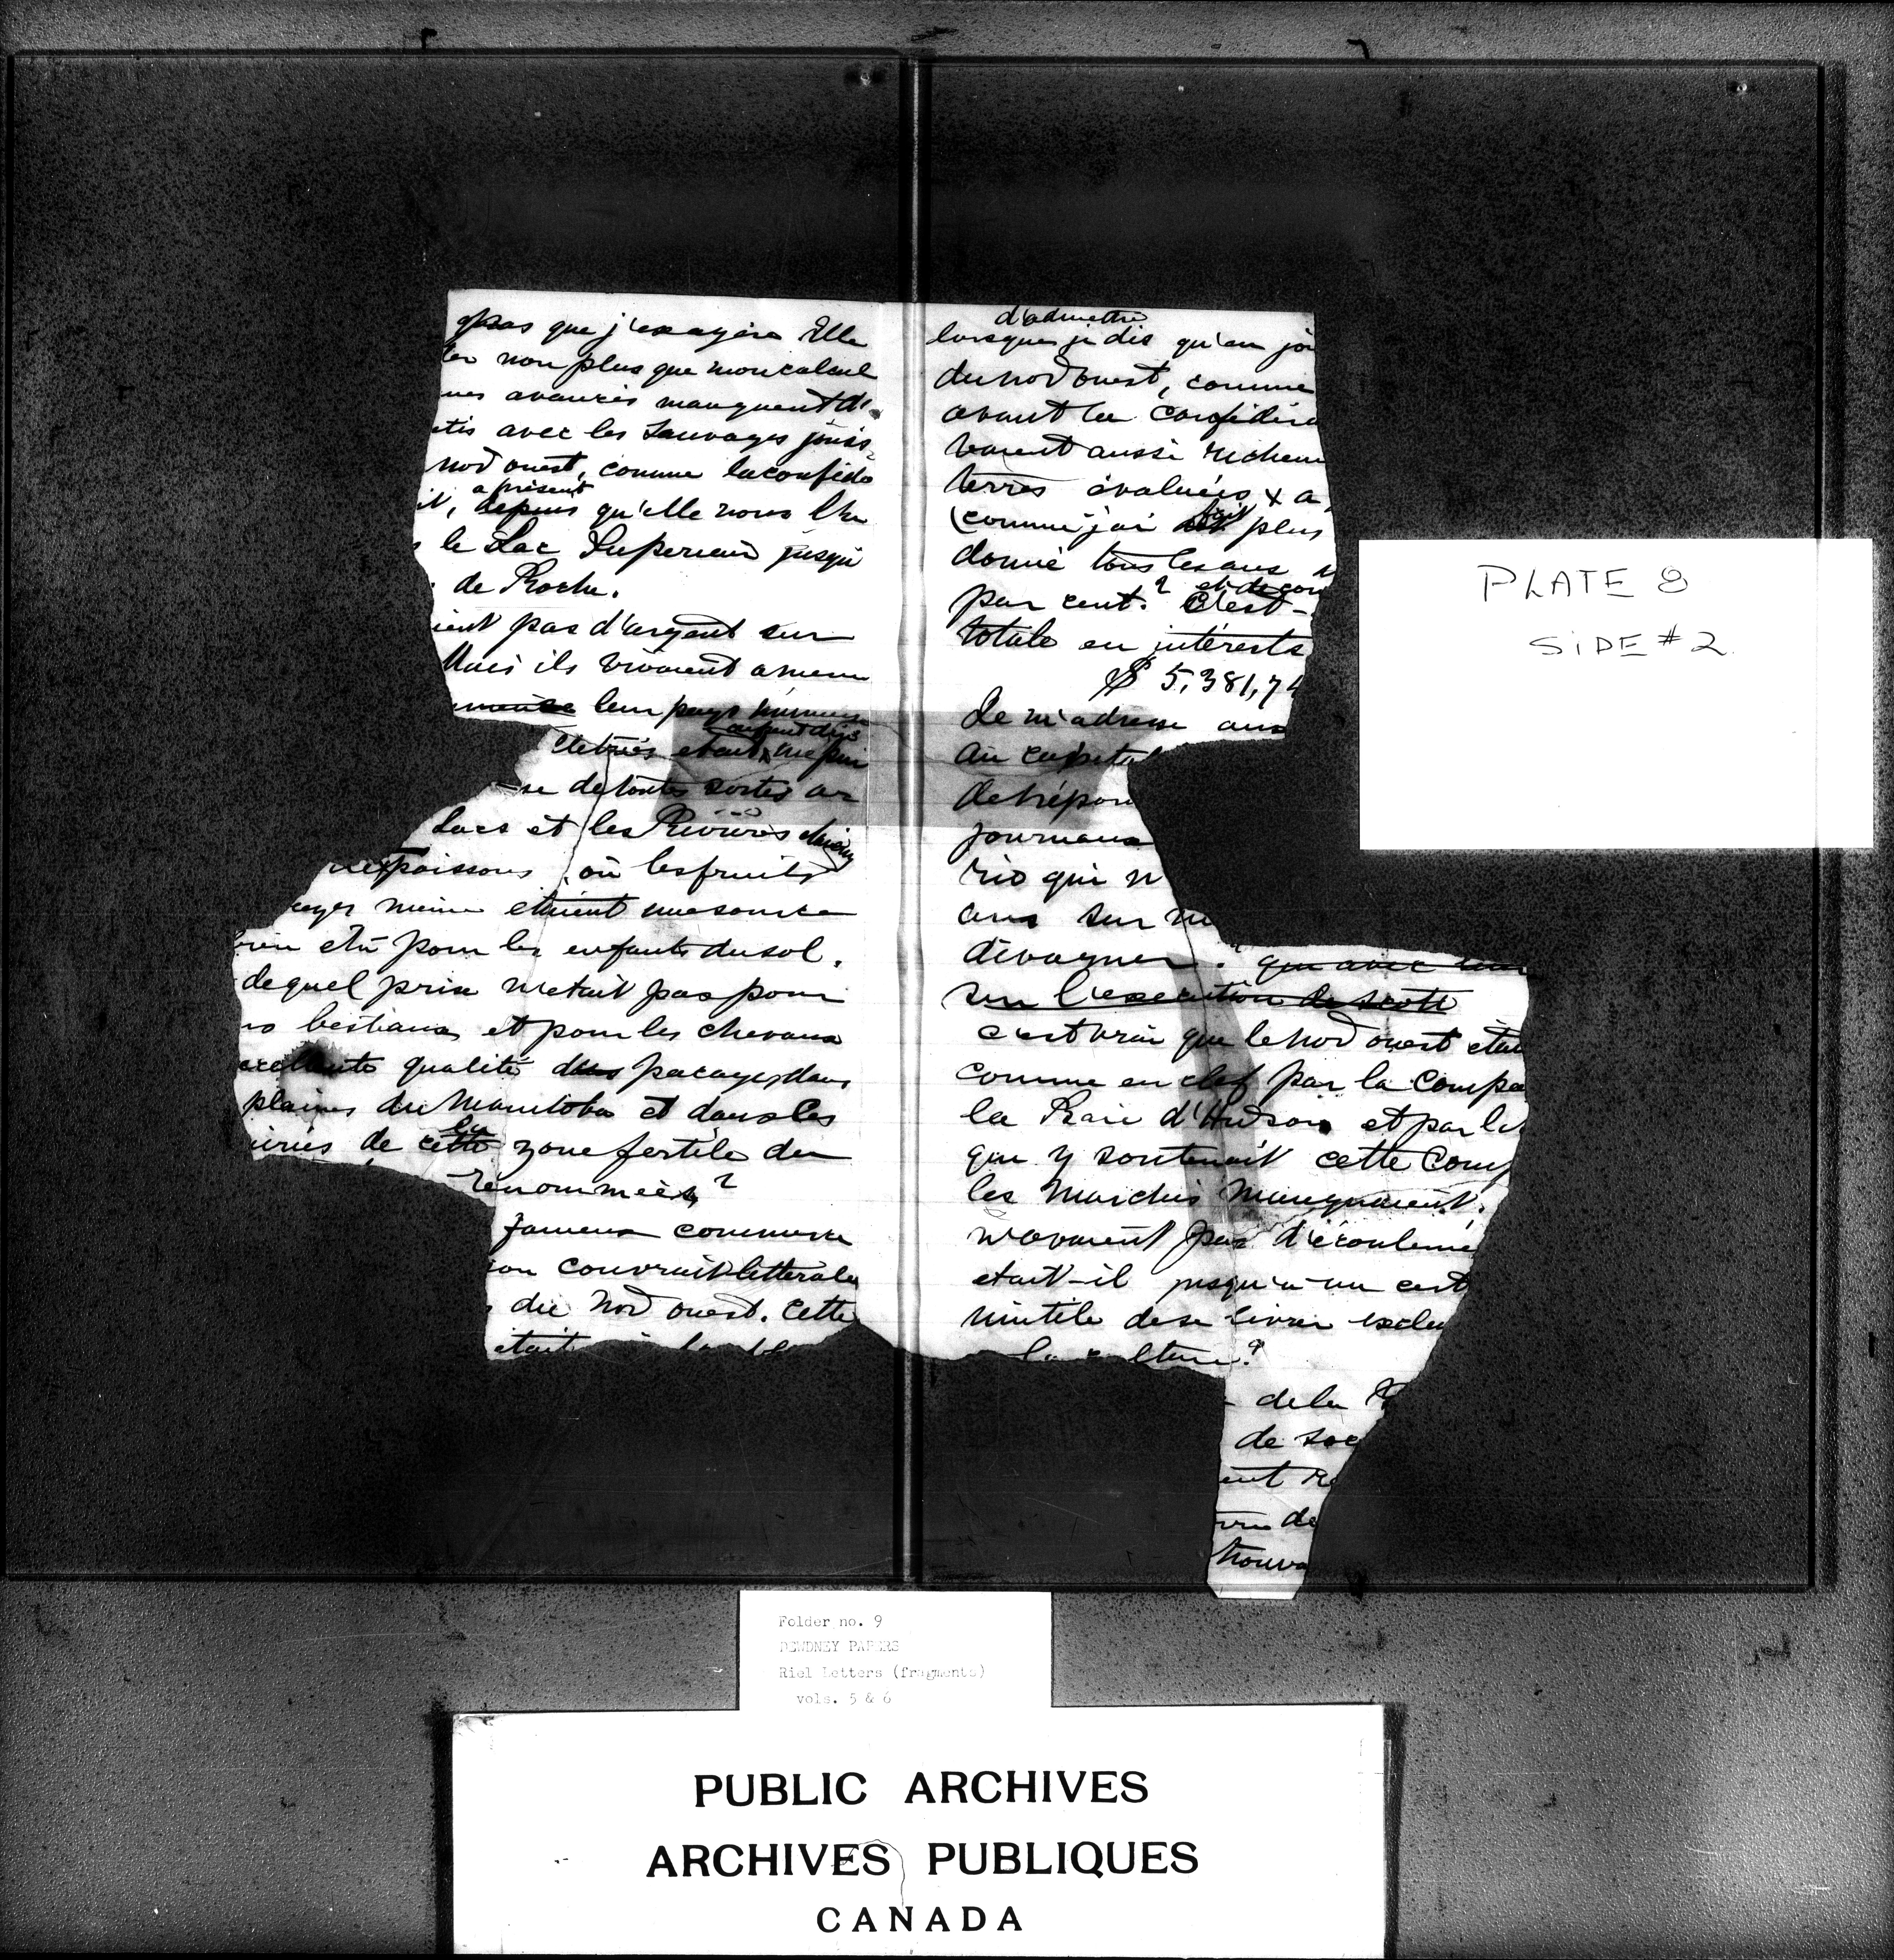 pas que j'exagère Elle
ter non plus que mon calcul
nes avancés manquent de
etis avec les Sauvages jouis-
nord ouest, comme la confédé
a présent
it, depuis qu'elle nous l'a
s le Lac Superieur jusqu'
de Roche.
ient pas d'argent sur
Mais ils vivaient a meme
leur pays immense
étant une
se de toutes sortes
Lacs et les Rivières
poissons où les fruits
ayes meme etaient une source
bien être pour les enfants du sol.
de quel prix n'etait pas pour
es bestiaux et pour les chevaux
excellente qualité des pacages dans
plaines du Manitoba et dans les
airies de cette la zone fertile du
renommées?
fameux commerce
on couvrait litterale
du Nord ouest. Cette
etait
d'admettre
lorsque je dis qu'en joi
du nord ouest, comme
avant la Confédéra
vaient aussi richem
terres évaluées & a
(comme j'ai fait plus
donné tous les ans
par cent? C'est-
totale en intérests
$ 5,381,74
Je m'adresse aux
Au capital
de répon
journaux
rio qui n
ans sur
divaguer? que avec leur
sur l'execution de Scott
c'est vrai que le nord ouest etai
comme en clef par la Compa
la Baie d'Hudson et par le
que y soutenait cette Comp
les Marchés Manquaient.
n'avaient pas d'écouleme
etait-il jusqu'a un cert
inutile de se livrer exclu
la culture?
de la
de soc
ent re
de
trouva
PLATE 8
SIDE #2
Folder no. 9
DEWDNEY PAPERS
Riel Letters (fragments)
vols. 5 & 6
PUBLIC ARCHIVES
ARCHIVES PUBLIQUES
CANADA